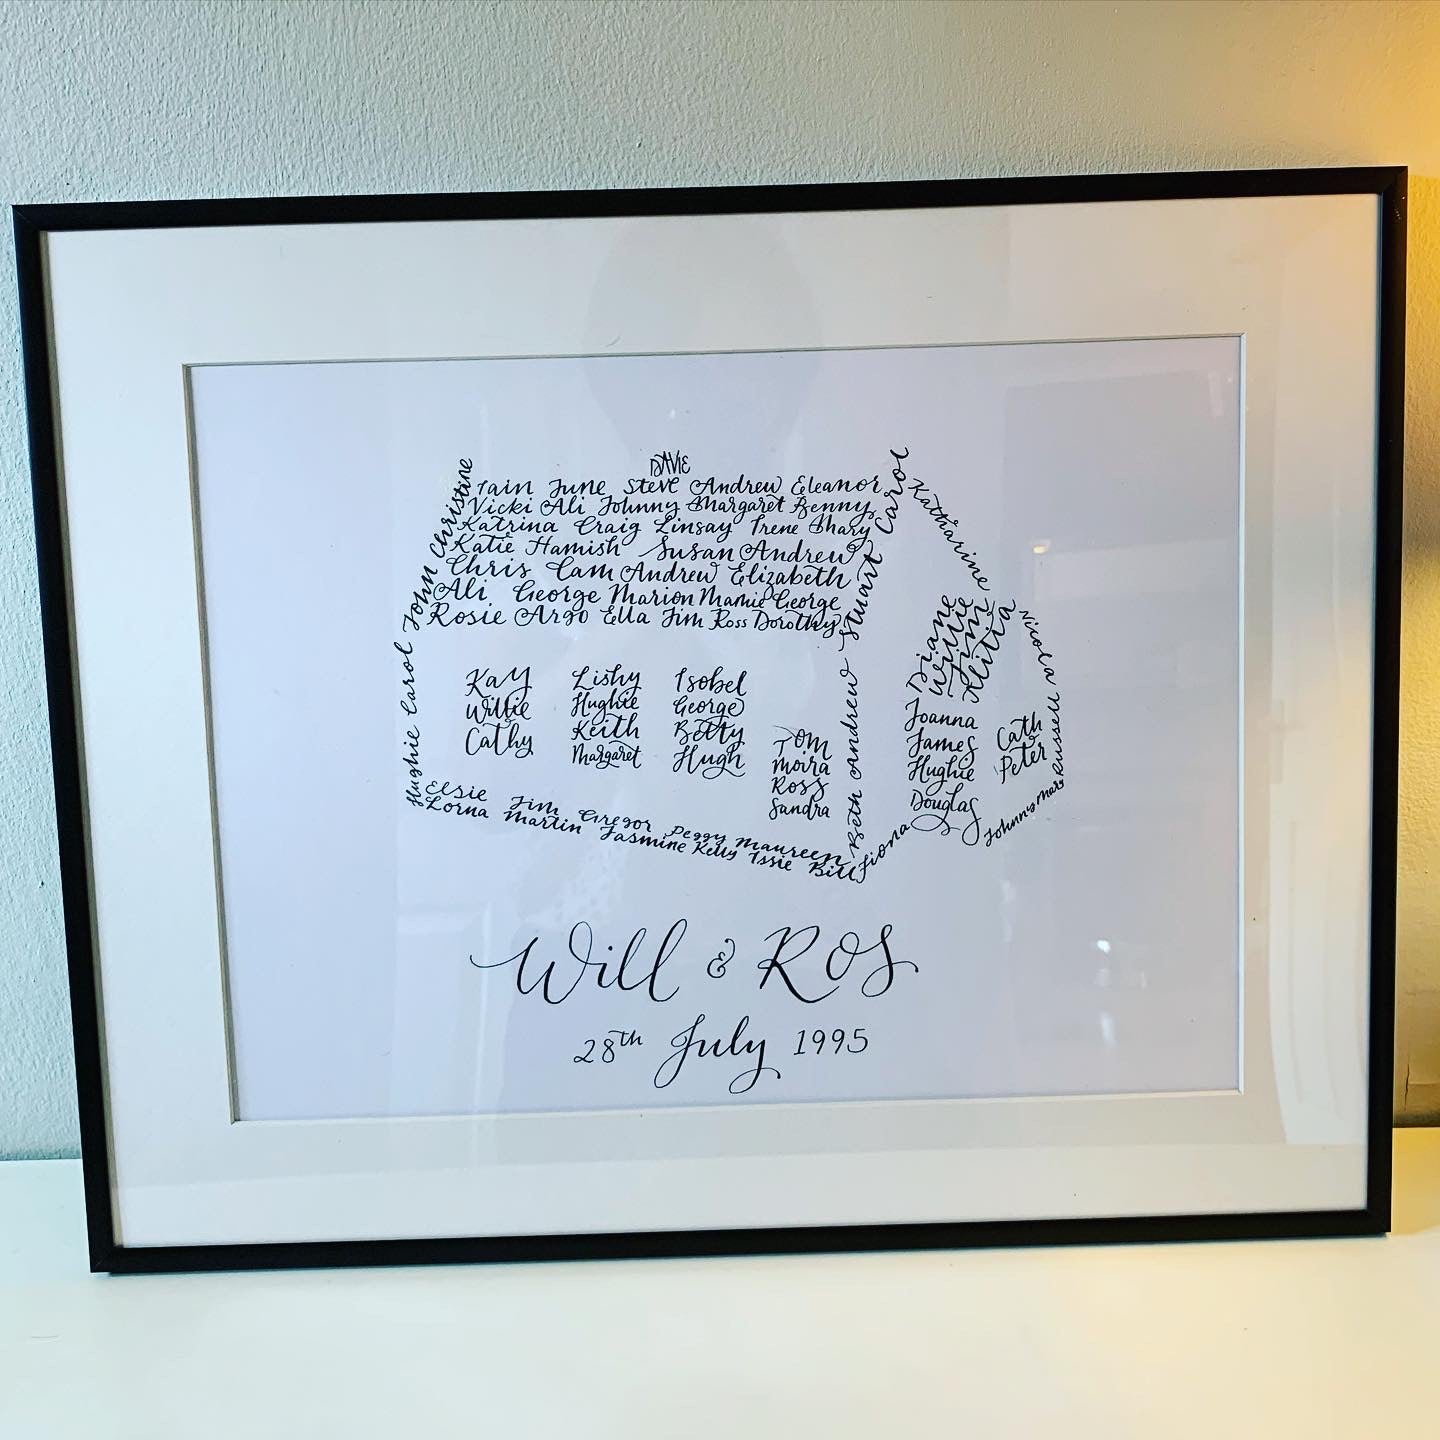 DAVIE
Iain June Steve Andrew Eleanor
Vicki Ali Johnny Margaret Benny
Katrina Craig Linsay Irene Mhary
Katie Hamish Susan Andrew
Chris Cam Andrew Elizabeth
Ali George Marion Mamie George
Rosie Argo Ella Jim Ross Dorothy
Hughie Carol John Christine
Stuart Carol
Katharine
Nicola
Russell
Diane
Willie
Jim
Alitia
Kay
Willie
Cathy
Lishy
Hughie
Keith
Margaret
Isobel
George
Betty
Hugh
Tom
Moira
Ross
Sandra
Beth Andrew
Joanna
James
Hughie
Douglas
Cath
Peter
Elsie Jim Gregor Peggy Maureen
Lorna Martin Jasmine Kelly Issie Bill
Fiona
Johnny Mary
Will & Ros
28th July 1995